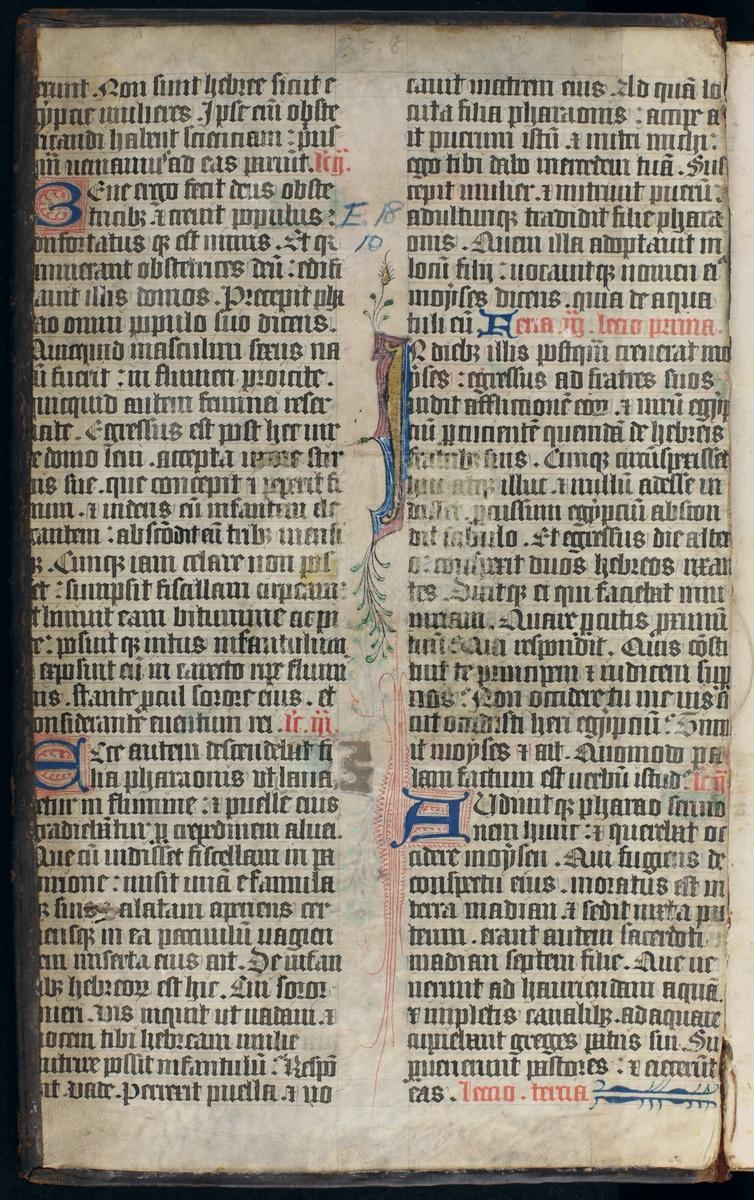 erunt. Non sunt hebree sicut e
gypcie mulieres. Ipse eni obste
tricandi habent scienciam : prius
qm ueniamus ad eas pariunt. lc ij.
Bene ergo fecit deus obste
tricibz ⁊ creuit populus :
onfortatus qz est nimis. Et qz
timuerant obstetrices deū : edifi
cauit illis domos. Precepit pha
rao omni populo suo dicens.
Quicquid masculini sexus na
tū fuerit : in flumen proicite.
quicquid autem feminei reser
uate. Egressus est post hec uir
de domo leui . accepta uxore stir
pis sue . que concepit ⁊ peperit fi
lium . ⁊ uidens eū infantem ele
gantem : abscōdit eū tribz mensi
bz. Cumqz iam celare non pos
set : sumpsit fiscellam cirpeam :
et liniuit eam bitumine ac pi
ce : posuit qz intus infantulum
⁊ exposuit eū in carecto ripe flumi
nis . stante pcul sorore eius . et
considerante euentum rei . lc. iij.
Ecce autem descendebat fi
lia pharaonis vt laua
retur in flumine : ⁊ puelle eius
gradiebātur p crepidinem aluei.
Que cū uidisset fiscellam in pa
pirione : misit unā e famula
bz suis alatam aperiens cer
nensqz in ea paruulū uagien
tem miserta eius ait. De infan
tibz hebreorz est hic. Cui soror
pueri . vis inquit ut uadam . ⁊
uocem tibi hebream mulie
nutrire possit infantulū : Respō
dit . vade . Perrexit puella ⁊ uo
E. 18
10
cauit matrem eius . Ad quā lo
cuta filia pharaonis : accipe a
it puerum istū ⁊ nutri michi :
ego tibi dabo mercedem tuā . Sus
cepit mulier . ⁊ nutriuit puerū :
adultumqz tradidit filie phara
onis . Quem illa adoptauit in
locū filij : uocauitqz nomen ei9
moyses dicens . quia de aqua
tuli eū. Feria iij. lectio prima.
IN diebz illis postqm creuerat mo
ises : egressus ad fratres suos
uidit afflictionē eorz . ⁊ uirū egip
ciū pcucientē quendā de hebreis
fratribz suis . Cumqz circūspexisset
huc atqz illuc . ⁊ nullū adesse ui
disset . pcussum egypciū abscon
dit sabulo . Et egressus die alte
ro : conspexit duos hebreos rixan
tes . Dixitqz ei qui faciebat iniu
riam . Quare pcutis proximū
tuū : Qui respondit . Quis cōsti
tuit te principem ⁊ iudicem sup
nos : Non occidere tu me uis si
cut occidisti heri egypciū : Timu
it moyses ⁊ ait . Quomodo pa
lam factum est uerbū istud : lc ij
Audiuitqz pharao sermo
nem hunc : ⁊ querebat oc
cidere moysen . Qui fugiens de
conspectu eius . moratus est in
terra madian ⁊ sedit iuxta pu
teum . erant autem sacerdoti
madian septem filie . Que ue
nerunt ad hauriendam aquā .
⁊ impletis canalibz . adaquare
cupiebant greges patris sui . Su
puenerunt pastores : ⁊ eiecerūt
eas . lectio . tercia